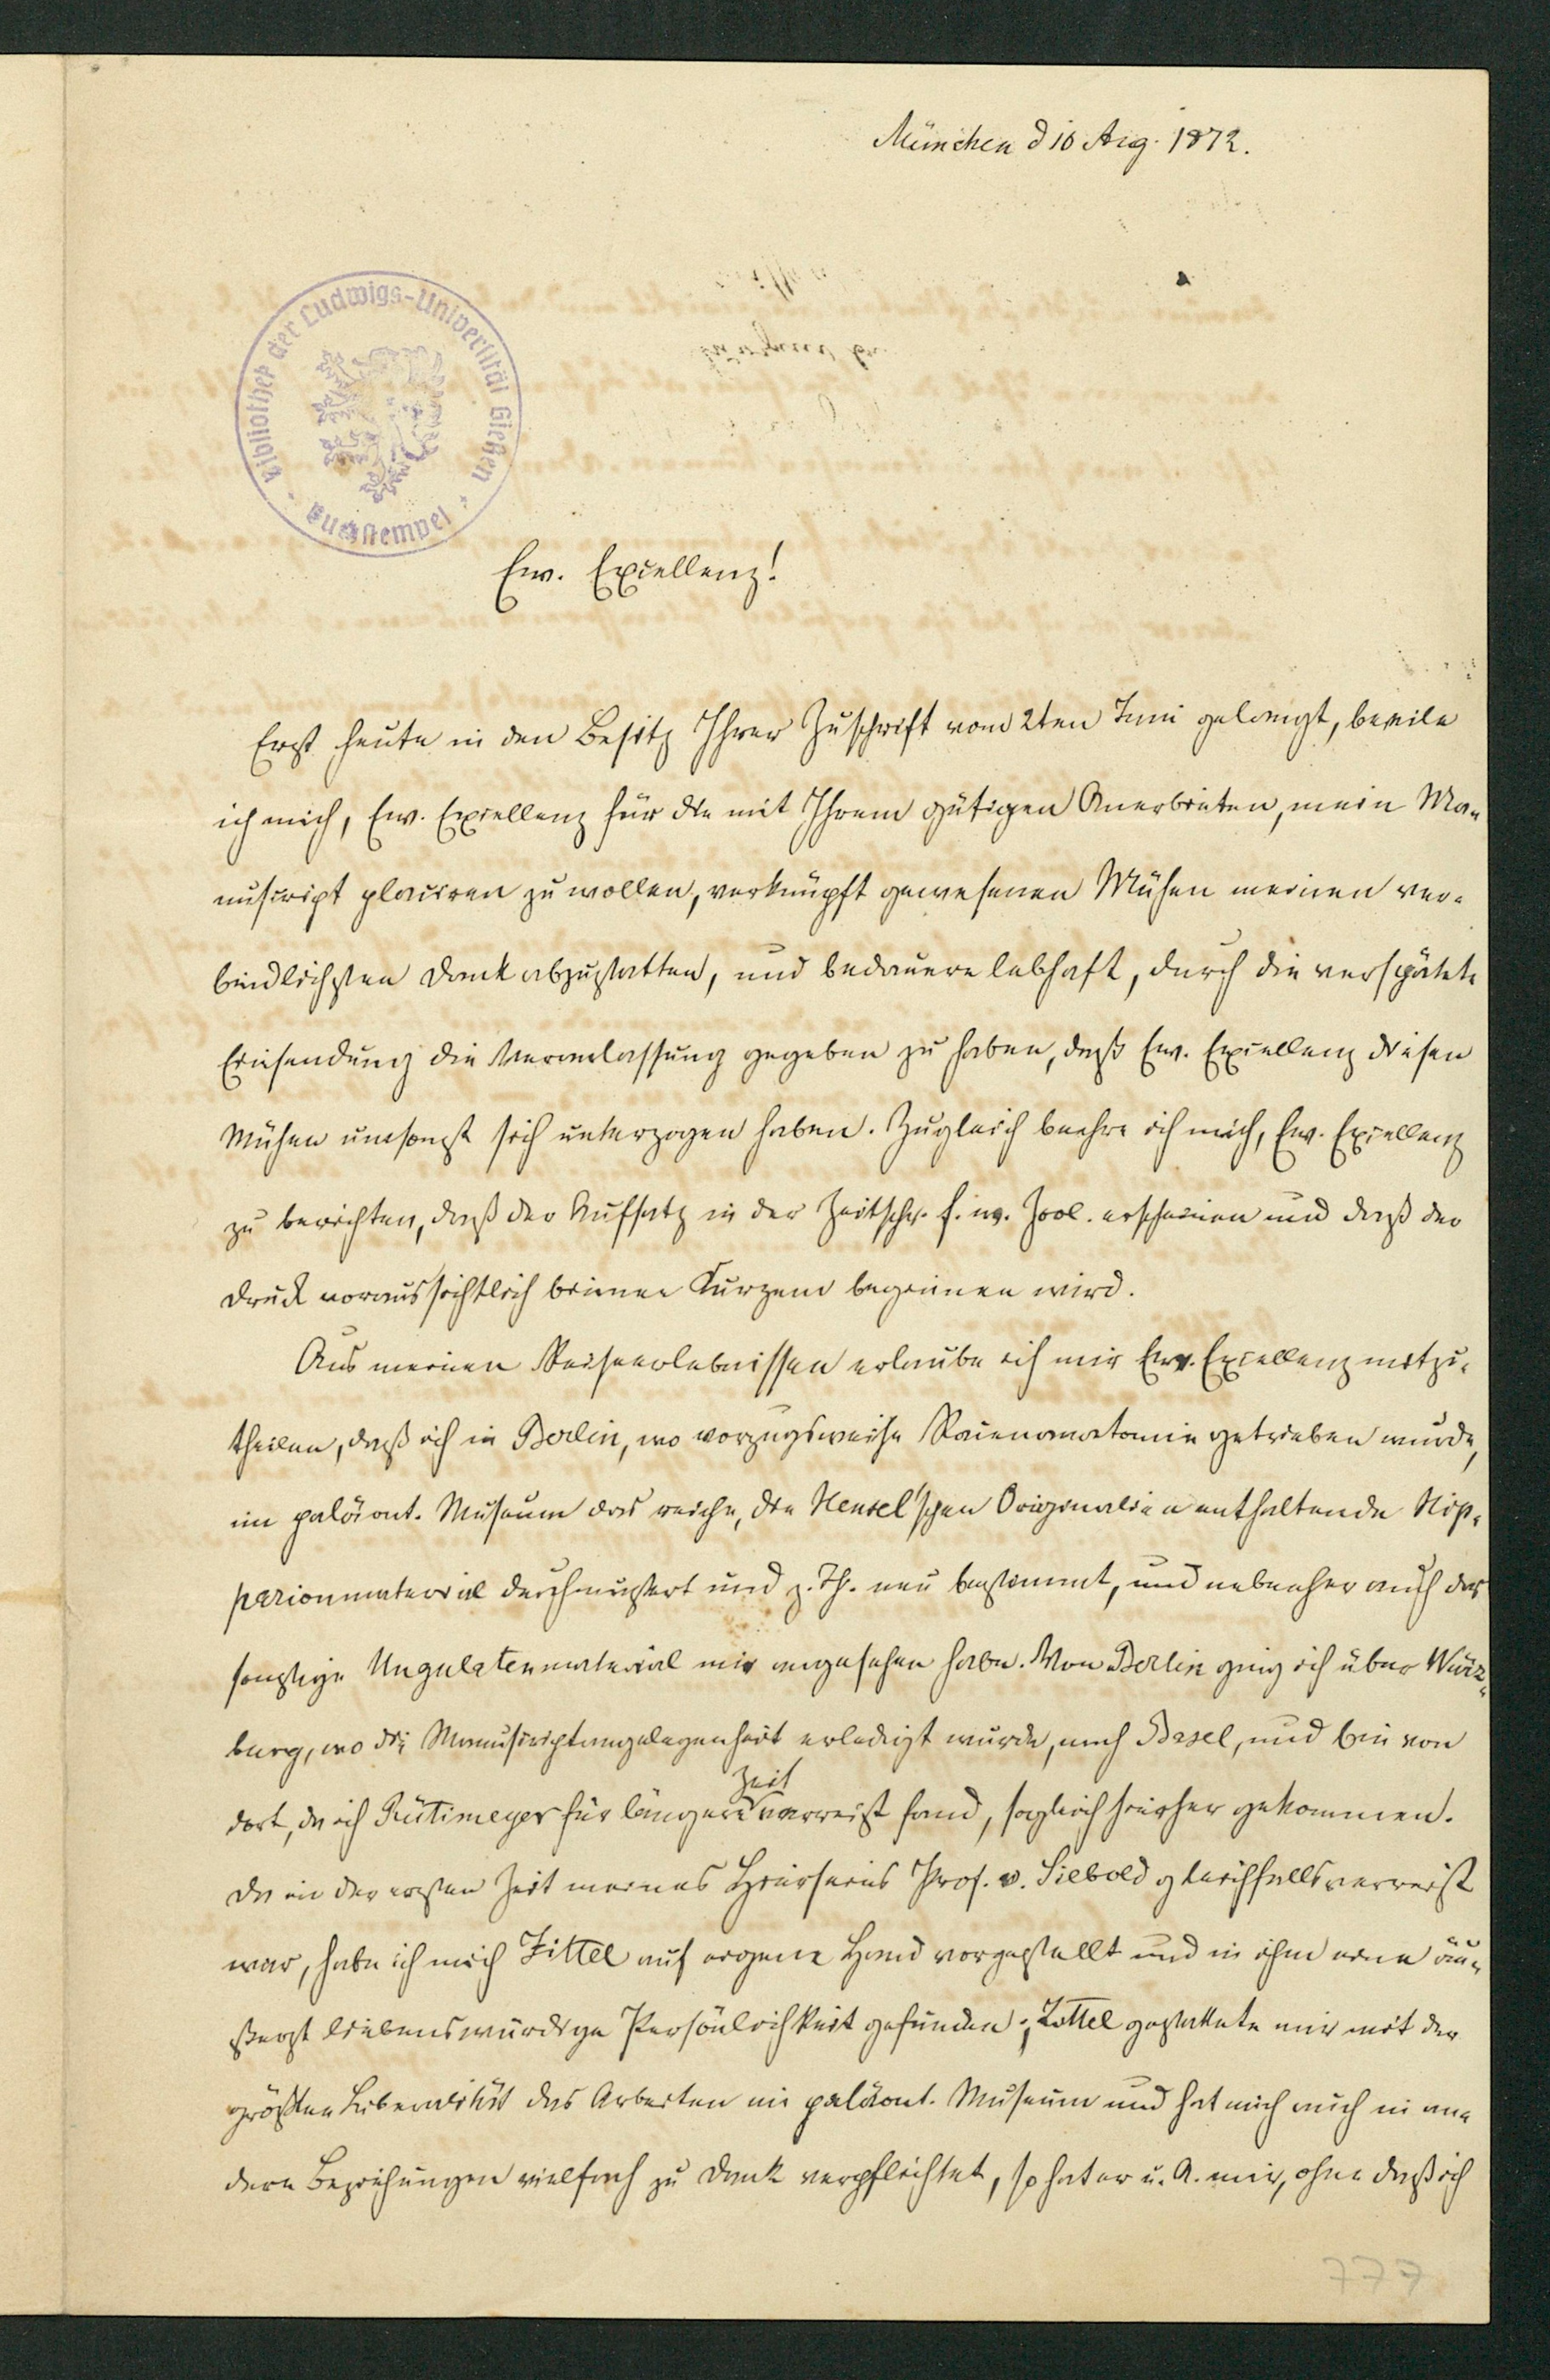 München d 10 Aug. 1872.
Bibliothek der Ludwigs-Universität Gießen
Buchstempel
Ew. Excellenz!
Erst heute in den Besitz Ihrer Zuschrift vom 2ten Juni gelangt, beeile
ich mich, Ew. Excellenz für die mit Ihrem gütigen Anerbieten, mein Ma-
nuscript placiren zu wollen, verknüpft gewesenen Mühen meinen ver-
bindlichsten Dank abzustatten, und bedauere lebhaft, durch die verspätete
Einsendung die Veranlassung gegeben zu haben, daß Ew. Excellenz diesen
Mühen umsonst sich unterzogen haben. Zugleich beehre ich mich, Ew. Excellenz
zu berichten, daß der Aufsatz in der Zeitschr. f. w. Zool. erscheinen und daß der
Druck voraussichtlich binnen Kurzem beginnen wird.
Aus meinen Reiseerlebnissen erlaube ich mir Ew. Excellenz mitzu-
theilen, daß ich in Berlin, wo vorzugsweise Racenanatomie getrieben wurde,
im paläont. Museum das reiche, die Hensel'schen Originalien enthaltende Hip-
parionmaterial durchmustert und z. Th. neu bestimmt, und nebenher auch das
sonstige Ungulatenmaterial mir angesehen habe. Von Berlin ging ich über Würz-
burg, wo die Manuscriptangelegenheit erledigt wurde, nach Basel, und bin von
dort, da ich Rütimeyer für längere Zeit verreist fand, sogleich hierher gekommen.
Da in der ersten Zeit meines Hierseins Prof. v. Siebold gleichfalls verreist
war, habe ich mich Zittel auf eigene Hand vorgestellt und in ihm eine äu-
ßerst liebenswürdige Persönlichkeit gefunden; Zittel gestattete mir mit der
größten Liberalität das Arbeiten im paläont. Museum und hat mich auch in an-
dern Beziehungen vielfach zu Dank verpflichtet, so hat er u. A. mir, ohne daß ich
777